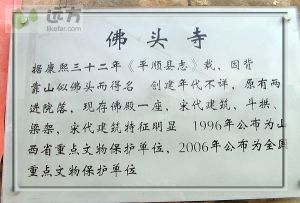 远方
likefar.com
佛头寺
据康熙三十二年《平顺县志》载，因背
靠山似佛头而得名 创建年代不详，原有两
进院落，现存佛殿一座，宋代建筑，斗拱、
梁架，宋代建筑特征明显 1996年公布为山
西省重点文物保护单位，2006年公布为全国
重点文物保护单位